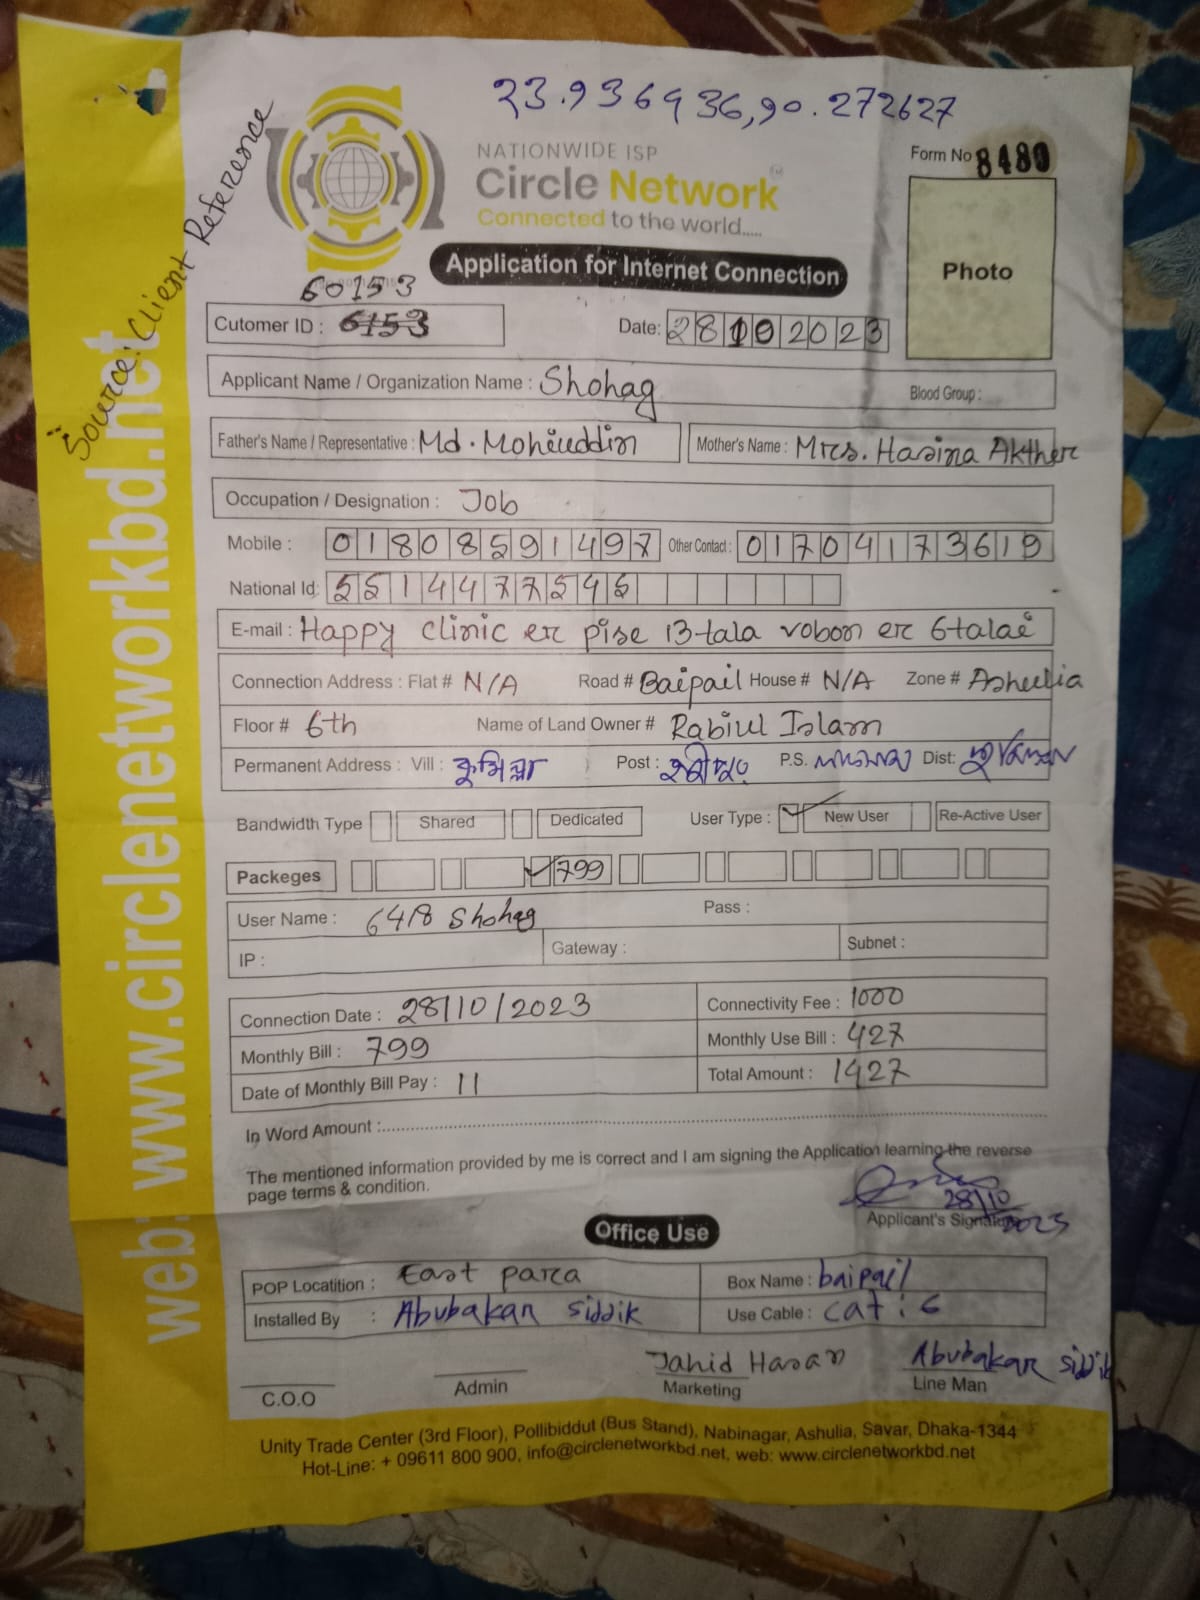 23.936936,90.272627
Source: Client Reference
NATIONWIDE ISP
Circle Network
Connected to the world.....
Form No 8480
Photo
Application for Internet Connection
60153
Cutomer ID : 6153
Date: 28102023
Applicant Name / Organization Name : Shohag
Blood Group :
Father's Name / Representative : Md. Mohiuddin
Mother's Name : Mrs. Hasina Akther
Occupation / Designation : Job
Mobile : 01808591497 Other Contact : 01704173619
National Id: 5514477545
E-mail : Happy clinic er pise 13 tala vobon er 6talai
Connection Address : Flat # N/A Road # Baipail House # N/A Zone # Ashulia
Floor # 6th Name of Land Owner # Rabiul Islam
Permanent Address : Vill : কুমিল্লা Post : P.S. Dist:
Bandwidth Type Shared Dedicated User Type : New User Re-Active User
Packeges 799
User Name : 6418 Shohag Pass :
IP : Gateway : Subnet :
Connection Date : 28/10/2023 Connectivity Fee : 1000
Monthly Bill : 799 Monthly Use Bill : 427
Date of Monthly Bill Pay : 11 Total Amount : 1427
In Word Amount :
The mentioned information provided by me is correct and I am signing the Application learning the reverse
page terms & condition.
28/10
2023
Applicant's Signature
Office Use
POP Locatition : East para Box Name : baipail
Installed By : Abubakar siddik Use Cable : cat : 6
Jahid Hasan Abubakar siddik
C.O.O Admin Marketing Line Man
Unity Trade Center (3rd Floor), Pollibiddut (Bus Stand), Nabinagar, Ashulia, Savar, Dhaka-1344
Hot-Line: + 09611 800 900, info@circlenetworkbd.net, web: www.circlenetworkbd.net
web: www.circlenetworkbd.net